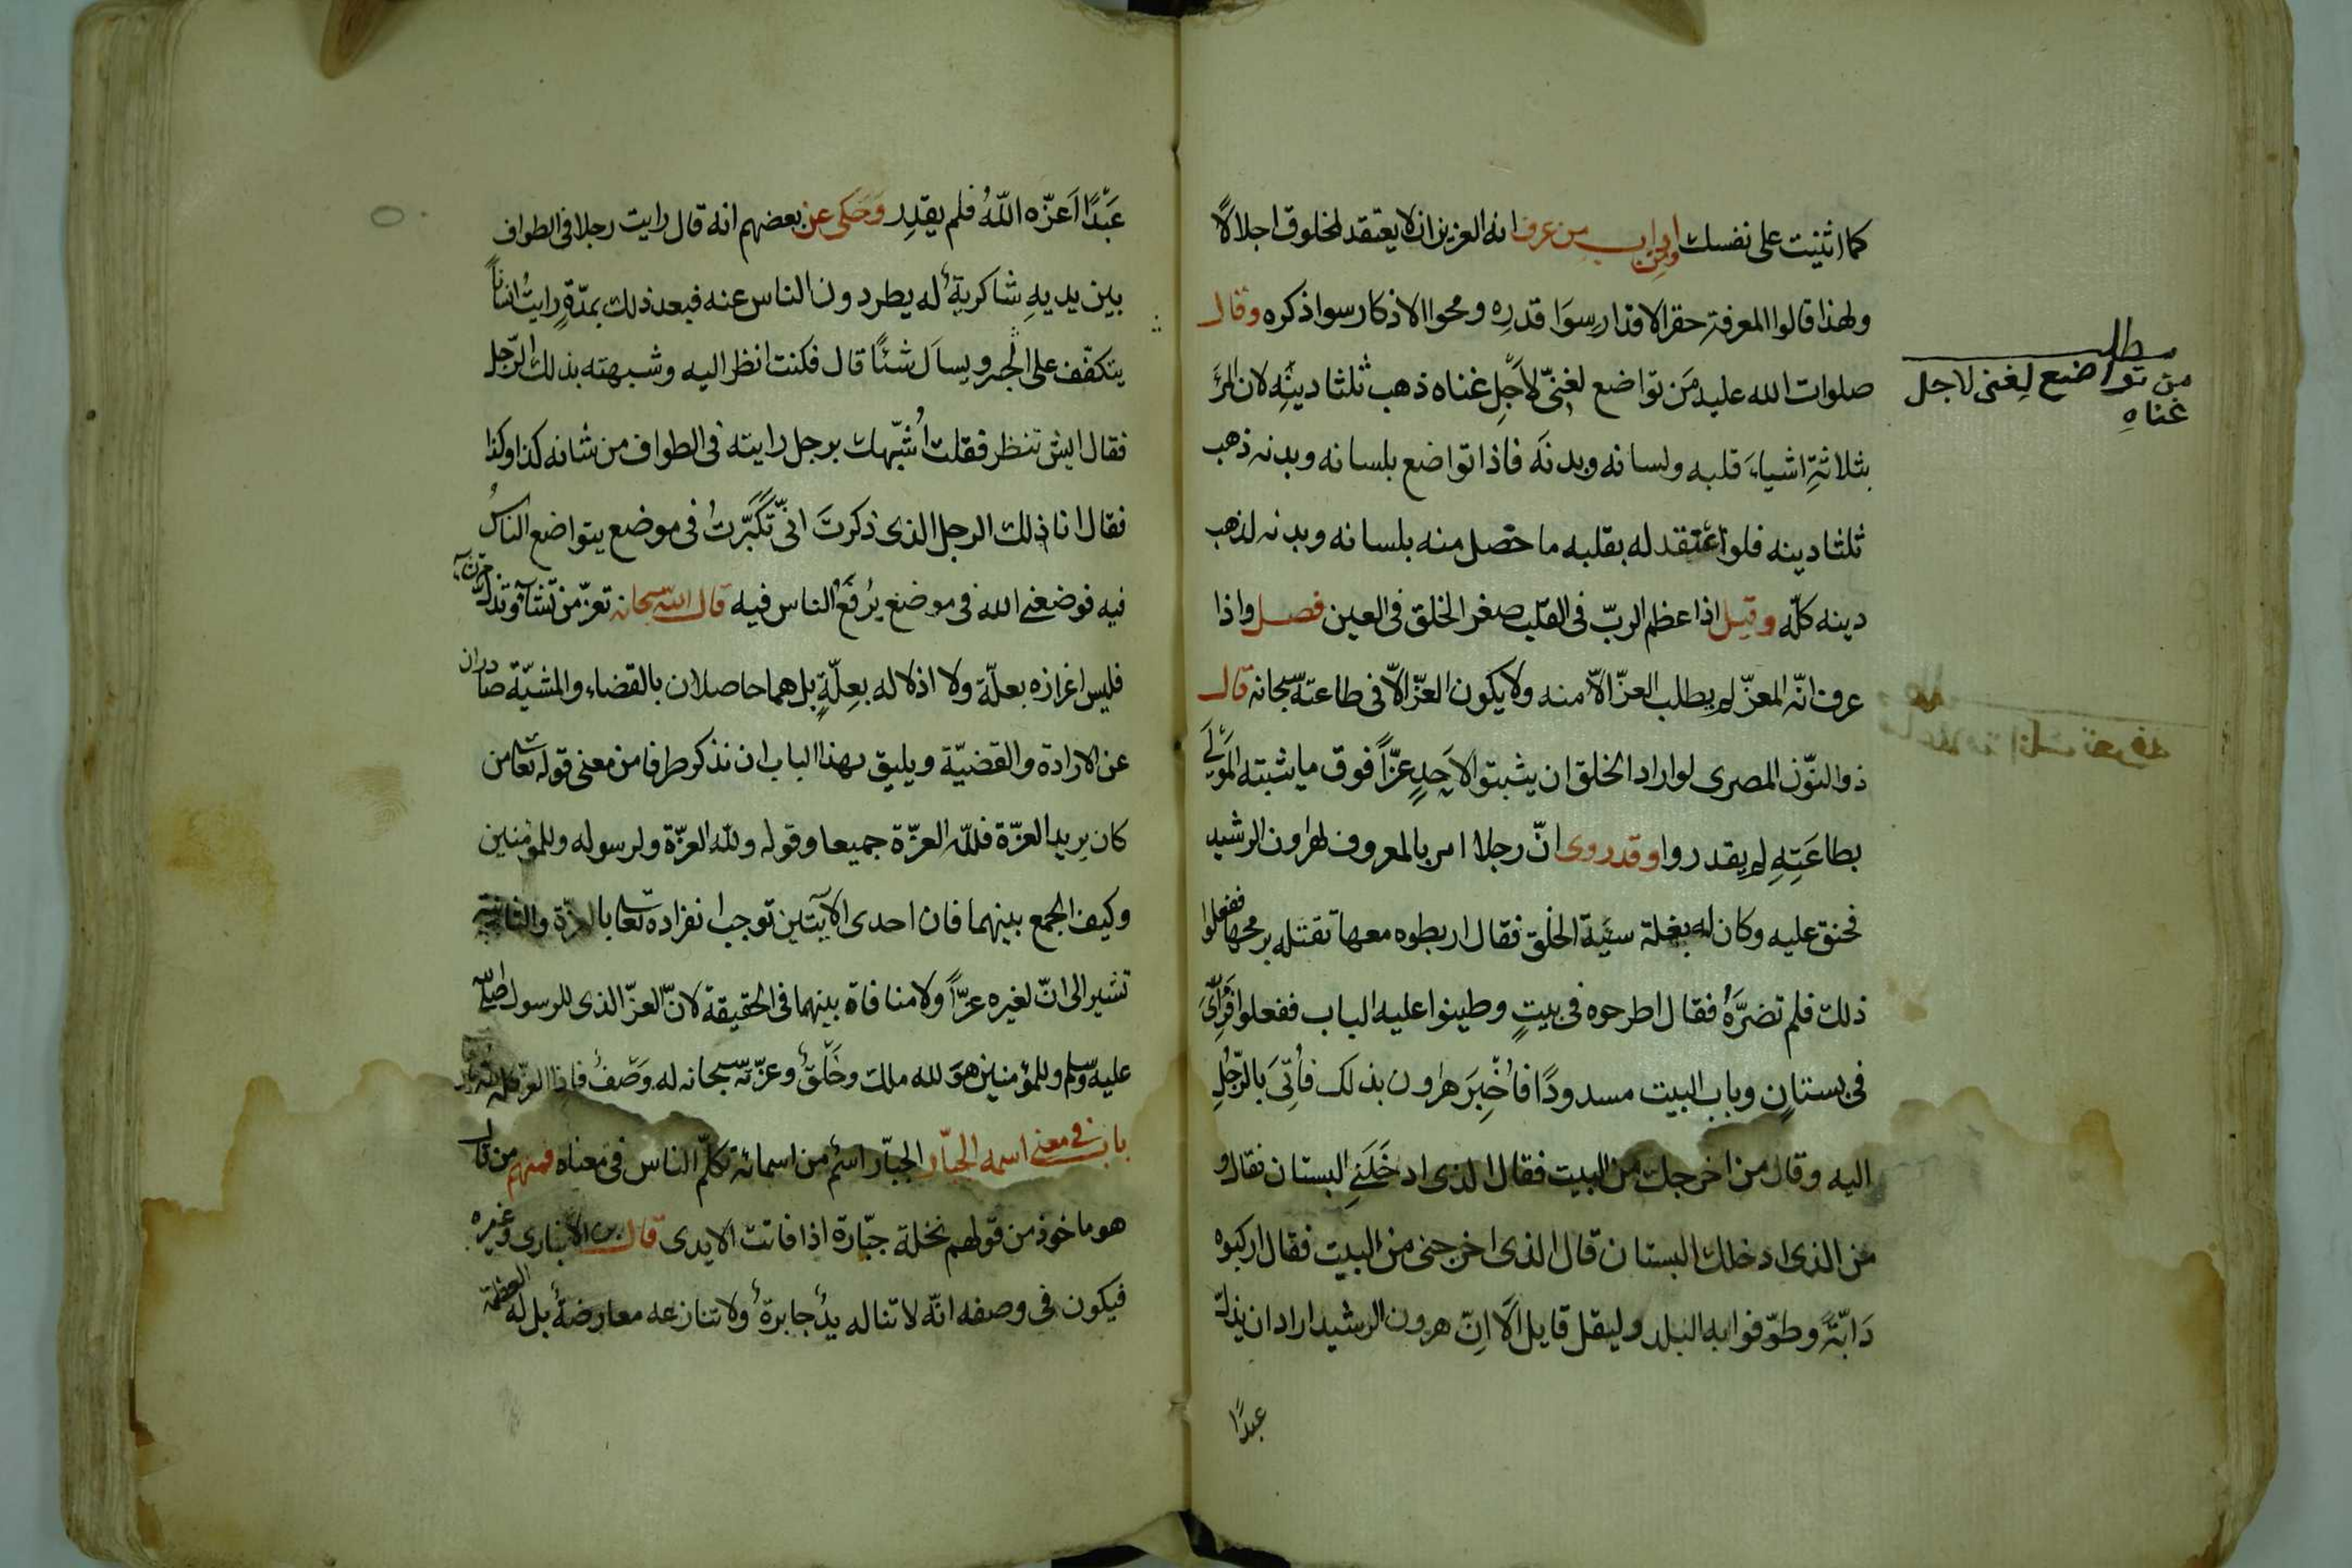 كما اثنيت على نفسك ومن اداب من عرف انه العزيز ان لا يعتقد لمخلوق اجلالاً
ولهذا قالوا المعرفة حقر الاقدار سِوَا قدرِه ومحوا الاذكار سوا ذكره وقال
صلوات الله عليه مَن تواضع لغنىّ لاَجلِ غناه ذهب ثلثا دينِه لان المرَٔ
بثلاثةِ اشياءَ قلبه ولسانه وبدنه فاذا تواضع بلسانه وبدنه ذهب
ثلثا دينه فلو اعتقد له بقلبه ما حصل منه بلسانه وبدنه لذهب
دينه كلّه وقيل اذا عظم الربّ فى القلب صغر الخلق فى العين فصل واذا
عرف انّه المعزّ لم يطلب العزّ الاّ منه ولا يكون العزّ الاّ فى طاعته سبحانه قال
ذو النّون المصرى لو اراد الخلق ان يثبتوا لاَحدٍ عزّاً فوق ما يثبته المَولَى
بطاعَتِهِ لم يقدروا وقد روى انّ رجلا امر بالمعروف لهرون الرشيد
فحنق عليه وكان له بغلة سيَّة الخُلق فقال اربطوه معها تقتله برمحها ففعلوا
ذلك فلم تضرَّهُ فقال اطرحوه فى بيتٍ وطينوا عليه الباب ففعلوا فَرُأِىَ
فى بستانٍ وباب البيت مسدودًا فاُخْبِرَ هرون بذلك فأُتِىَ بالرّجُلِ
اليه وقال من اخرجك من البيت فقال الذى ادخَلَنِى البستان فقال و
من الذى ادخلك البستان قال الذى اخرجنى من البيت فقال اركبوه
دَابّةً وطوّفوا به البلد وليقل قايل اَلَا اِنّ هرون الرشيد اراد ان يذلّ
عبدًا
مطلب
من تواضع لِغنى لاجل
غناهِ
عَبْدًا اَعزّه اللهُ فلم يقدِر وَحَكى عن بعضهم انه قال رايت رجلا فى الطواف
بين يديهِ شاكريةٌ له يطردون الناس عنه فبعد ذلك بمدّةٍ رايتُ انساناً
يتكفّف على الجسر ويساَل شئًا قال فكنت انظر اليه وشبهته بذلك الرّجل
فقال ايش تنظر فقلت اُشَبّهك برجل رايته فى الطواف من شانه كذا وكذا
فقال انا ذلك الرجل الذى ذكرتَ انّى تَكَبَّرتُ فى موضع يتواضع الناسُ
فيه فوضعنى الله فى موضع يُرفَعُ الناس فيه قال الله سبحانه تعزّ من تشآء وتذلّ من تشآء
فليس اعزازه بعلّة ولا اذلاله بعِلّةٍ بل هما حاصلان بالقضاء والمشيّة صادران
عن الارادة والقضيّة ويليق بهذا الباب ان نذكر طرفا من معنى قوله تعا من
كان يريد العزّة فللّه العزّة جميعا وقوله ولله العزّة ولرسوله وللمؤمنين
وكيف الجمع بينهما فان احدى الآيتين توجب انفراده تعا بالعزّة والثانية
تشير الى انّ لغيره عزّاً ولا منافاة بينهما فى الحقيقة لانّ العزّ الذى للرسول صلى الله
عليه وسلم وللمؤمنين هوَ لله ملك وخَلْقٌ وعزّته سبحانه له وَصْفٌ فاذا العزّ كله لله
باب فى معنى اسمه الجبّار الجبّار اسْم من اسمائه تكلّم الناس فى معناه فمنهم من قال
هو ماخوذ من قولهم نخلة جبّارة اذا فاتت الايدى قال ابن الانبارى وغيره
فيكون فى وصفه انّه لا تناله يدٌ جابرةٌ ولا تنازعه معارضةٌ بل له العظمة